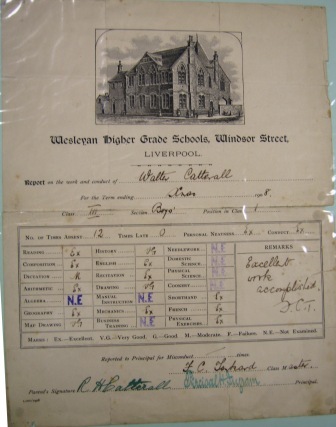 Wesleyan Higher Grade Schools, Windsor Street,
LIVERPOOL.
Report on the work and conduct of Walter Catterall
For the Term ending Xmas 1908.
Class III Section Boys' Position in Class 1
No. of Times Absent 12 Times Late 0 Personal Neatness Ex Conduct Ex
Reading Ex History VG Needlework N.E Remarks
Composition Ex English Ex Domestic Science N.E Excellent
Dictation Recitation Ex Physical Science N.E work
Arithmetic Ex Drawing VG Cookery N.E accomplished.
Algebra N.E Manual Instruction N.E Shorthand Ex
Geography Ex Mechanics French Ex
Map Drawing VG Business Training N.E Physical Exercises Ex
Marks: Ex.—Excellent. V.G.—Very Good. G.—Good. M.—Moderate. F.—Failure. N.E.—Not Examined.
Reported to Principal for Misconduct times
Class Master.
Parent's Signature R H Catterall